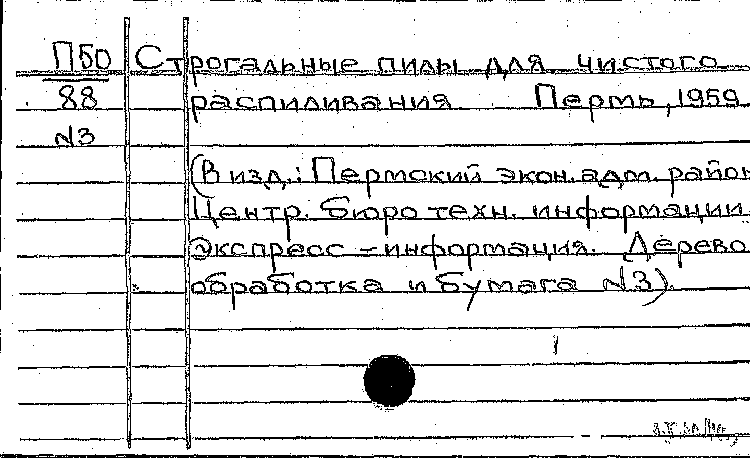 П50 Строгальные пилы для чистого
88 распиливания Пермь, 1959
N3
(В изд.: Пермский экон. адм. район
Центр. бюро техн. информации.
Экспресс – информация. Дерево
обработка и бумага N3).